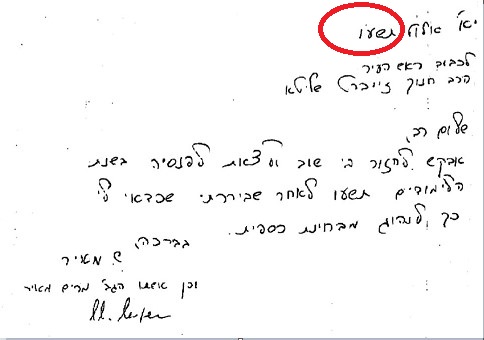 יא' אלול תשעו
לכבוד ראש העיר
הרב חנוך זייברט שליטא
שלום רב,
אבקש לחזור בי שוב ולצאת לפנסיה בשנת
הלימודים תשעו לאחר שביררתי שכדאי לי
כך לנהוג מבחינת כספית.
בברכה,
ש. מאיר
וכן אשתו הגב' מרים מאיר